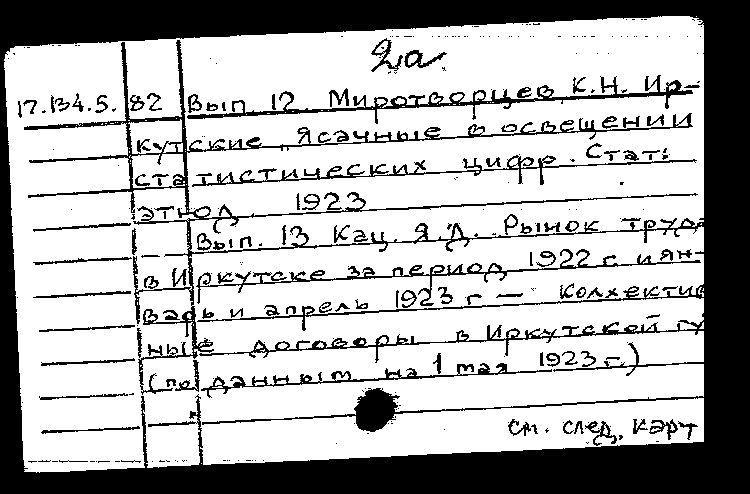 2а
17.134.5. 82 Вып. 12. Миротворцев К.Н. Ир-
кутские ясачные в освещении
статистических цифр. Стат.
этюд 1923
Вып. 13 Кац. Я.Д. Рынок труда
в Иркутске за период 1922 г. и ян-
варь и апрель 1923 г — Колхектив
ные договоры в Иркутской гу
(по данным на 1 мая 1923 г.)
см. след. карт